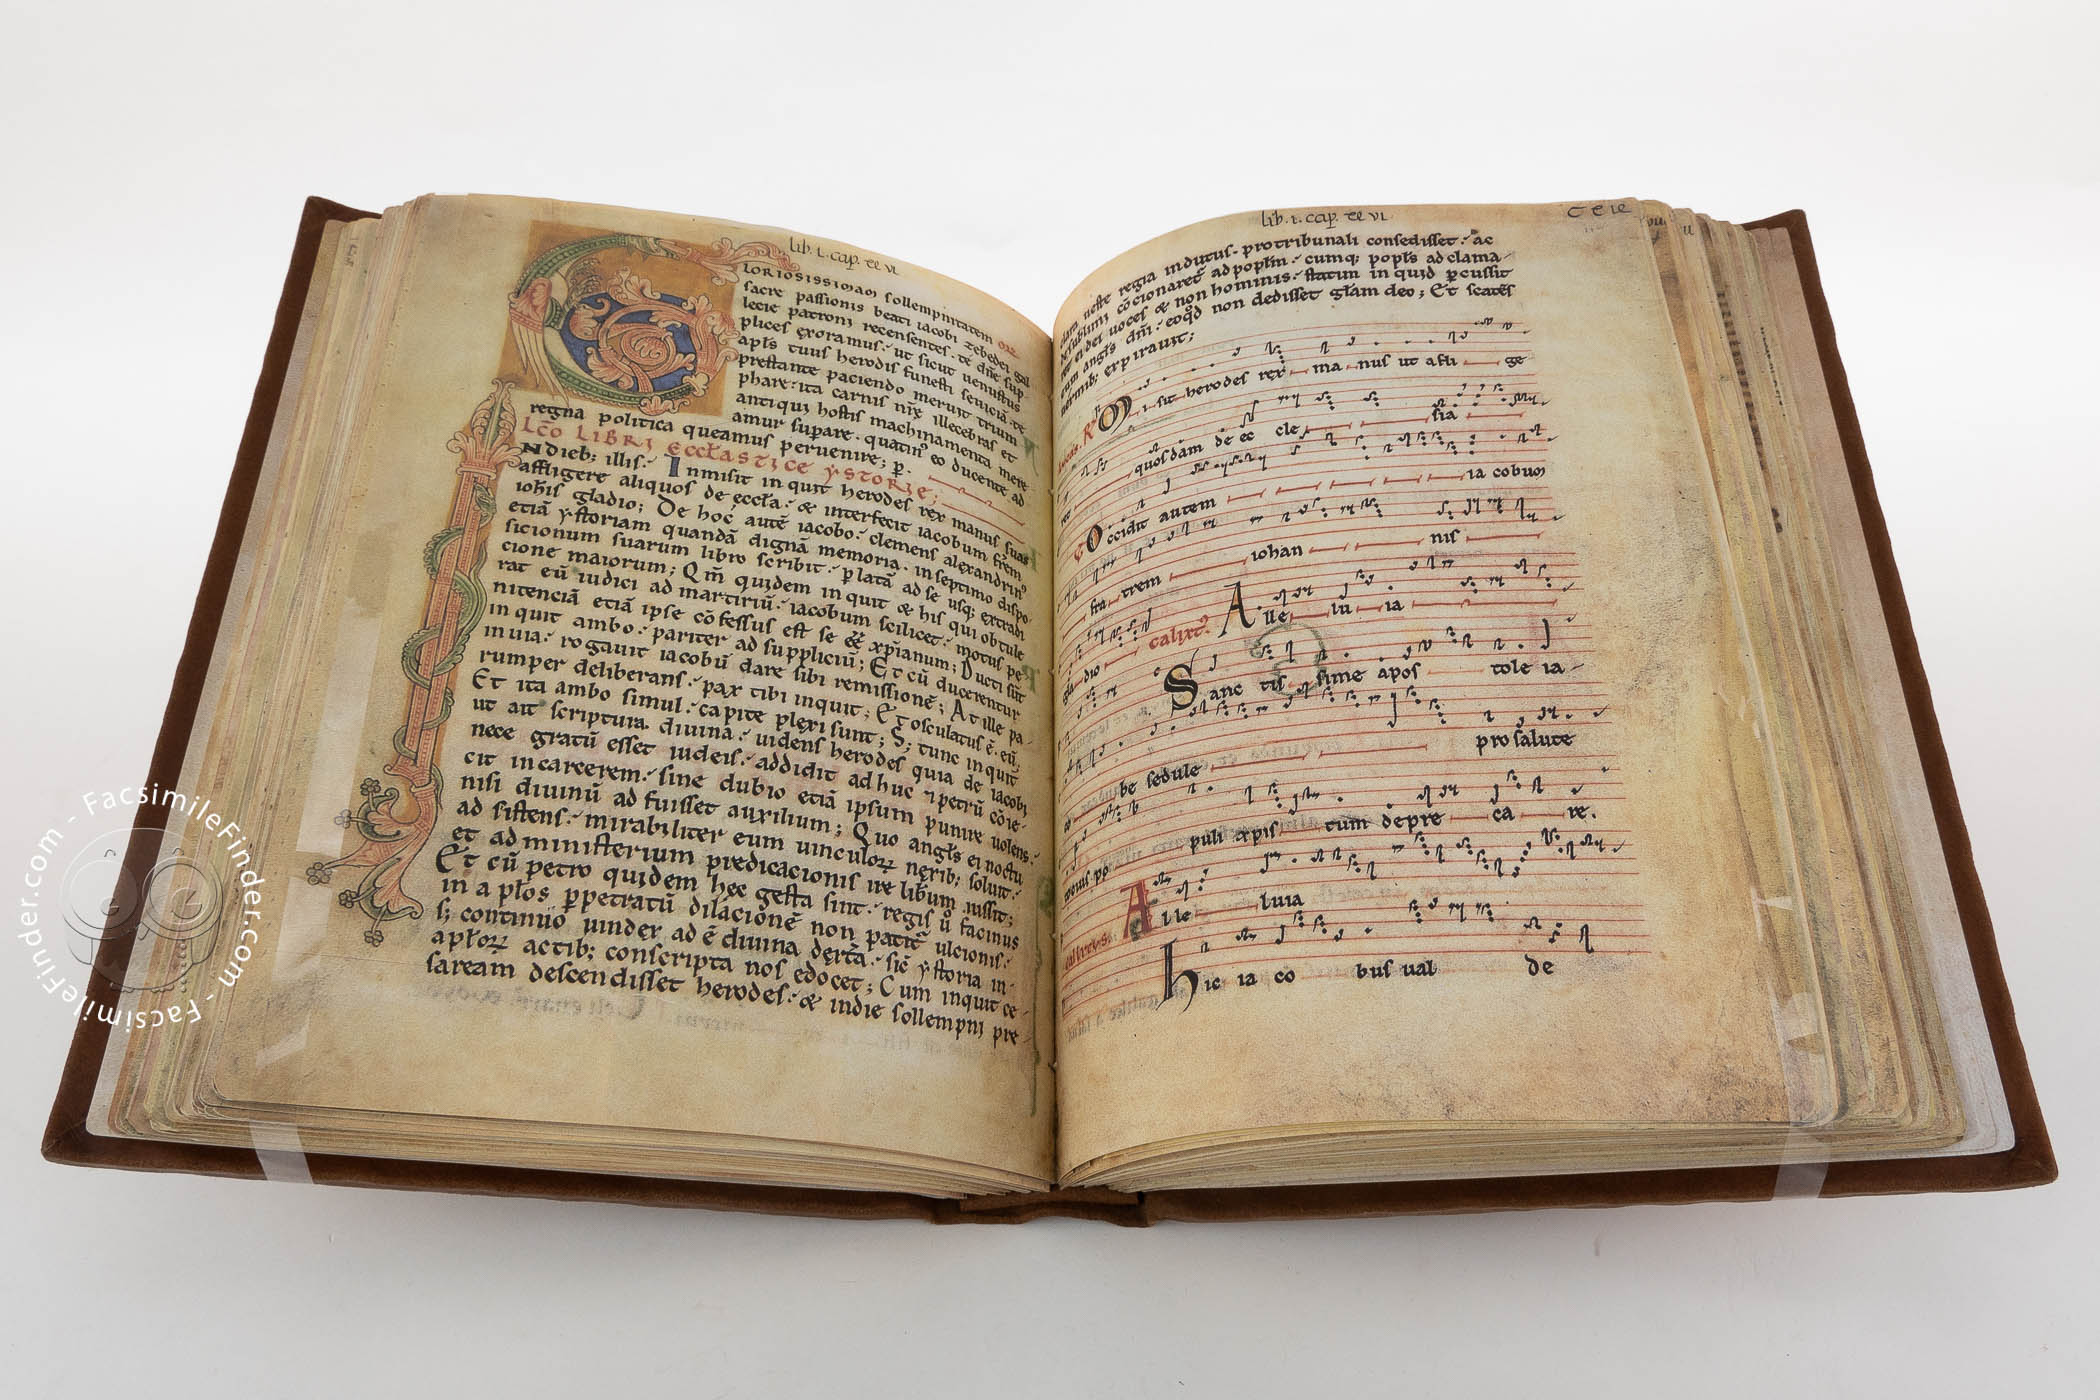 lib. I. cap. xx vi
LORIOSISSIMAM sollempnitatem OR.
sacre passionis beati iacobi zebedei gal
lecie patroni recensentes. te dñe sup
plices exoramus. ut sicut uenustus
apłs tuus herodis funesti seuiciā te
prestante paciendo meruit trium
phare. ita carnis nr̄e illecebras et
antiqui hostis machinamenta mere
amur supare. quatin⁹ eo ducente ad
regna politica queamus peruenire; p.
LC̄O LIBRI ECCŁASTICE YSTORIE;
NDIEB; illis. Inmisit inquit herodes rex manus suas
affligere aliquos de eccła. & interfecit iacobum frēm
ioħis gladio; De hoc autē iacobo. clemens alexandrin⁹
etiā ystoriam quandā dignā memoria. in septimo dispo
sicionum suarum libro scribit. p latā ad se usq; ex tradi
cione maiorum; Qm̄ quidem inquit & his qui obtule
rat eū iudici ad martiriū. iacobum scilicet. motus pe
nitenciā etiā ipse cōfessus est se & xp̄ianum; Ducti sūt
inquit ambo. pariter ad suppliciū; Et cū ducerentur
inuia. rogauit iacobū dare sibi remissionē; At ille pa
rumper deliberans. pax tibi inquit; Et osculatus ē. eū;
Et ita ambo simul. capite plexi sunt; S; tunc inquit
ut ait scriptura diuina. uidens herodes quia de iacobi
nece gratū esset iudeis. addidit adhuc & petrū cōie
cit in carcerem. sine dubio etiā ipsum punire uolens.
nisi diuinū ad fuisset auxilium; Quo angłs ei noctu
ad sistens. mirabiliter eum uinculoꝝ nexib; soluit.
et ad ministerium predicacionis ire libum iussit;
Et cū petro quidem hec gesta sint. regis u facinus
in apłos ppetratū dilacionē non patit̃ ulcionis.
s; continuo uindex ad ē diuina dext̃a. sic̄ ystoria in
apłoꝝ actib; conscripta nos edocet; Cum inquit ce
saream descendisset herodes. & in die sollempni pre
lib. I. cap. xx vi
clara ueste regia indutus. pro tribunali consedisset. ac
de sublimi cōcionaret̃ ad popłm. cumq; popłs ad clama
ret ei dei uoces & non hominis. statim in quid pcussit
eum angłs dn̄i. eo qd non dedisset głam deo; Et scatēs
uermib; expirauit;
lucas. R̃ Misit herodes rex manus ut affli ge
ret quosdam de ec cle sia
Occidit autem iacobum
fra trem iohan nis
gla dio calixt⁹. Alle lu ia
Sanc tis sime apos tole ia
co be sedule pro salute
puli xpis tum depre ca re.
calixtus. Alle luia
Hic ia co bus ual de
FacsimileFinder.com - FacsimileFinder.com - FacsimileFinder.com